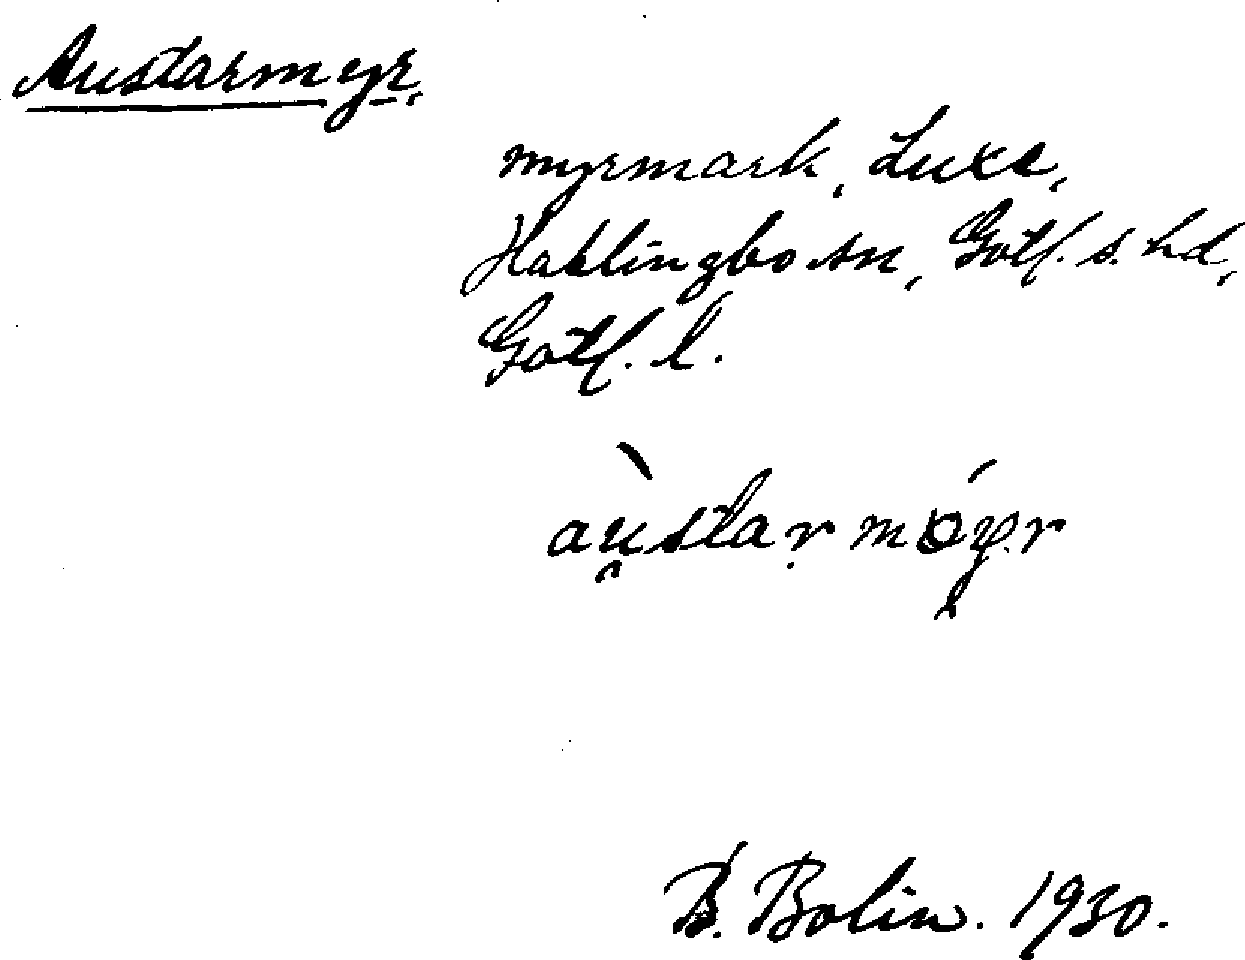 Austarmyr.
myrmark, Luxe,
Hablingbo sn, Gotl. s. hd,
Gotl. l.
àu̯starmóy̨r
B. Bolin. 1930.